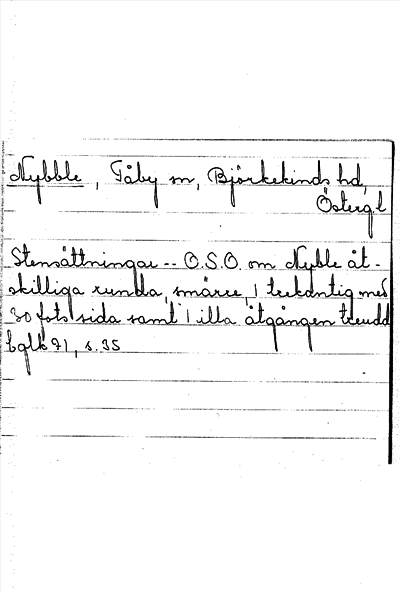 Nybble, Tåby sn, Björkekinds hd,
Östergl
Stensättningar -- O.S.O. om Nyble åt-
skilliga runda, smärre, 1 trekantig med
30 fots sida samt 1 illa åtgången treudd
bglb 91, s. 35